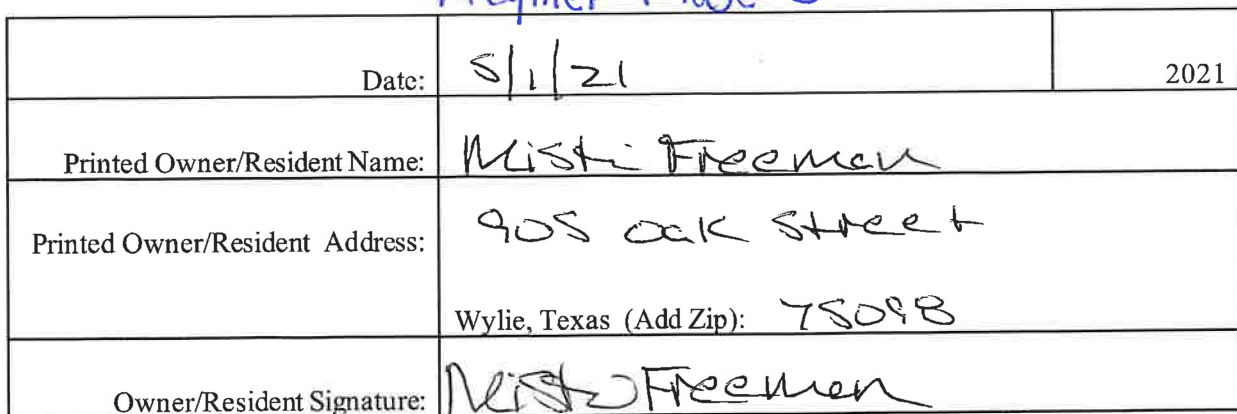 Date: 5/1/21 2021
Printed Owner/Resident Name: Misti Freeman
Printed Owner/Resident Address: 905 Oak Street
Wylie, Texas (Add Zip): 75098
Owner/Resident Signature: Misti Freeman